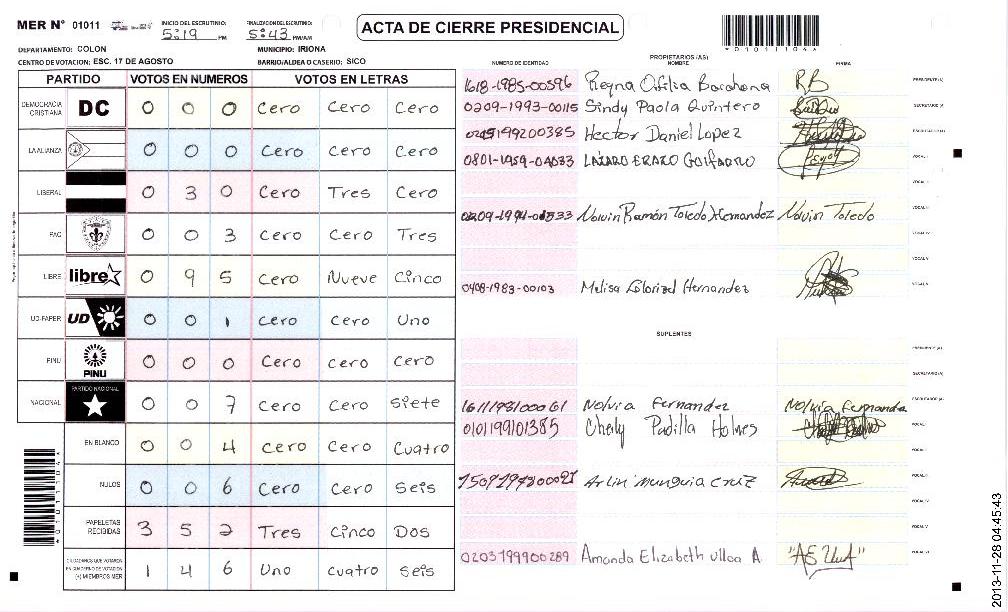 MER N° 01011 INICIO DEL ESCRUTINIO: 5:19 PM FINALIZACION DEL ESCRUTINIO: 5:43 PM/AM
ACTA DE CIERRE PRESIDENCIAL
*01011104*
DEPARTAMENTO: COLON MUNICIPIO: IRIONA
CENTRO DE VOTACION: ESC. 17 DE AGOSTO BARRIO/ALDEA O CASERIO: SICO
PROPIETARIOS (AS)
NUMERO DE IDENTIDAD NOMBRE FIRMA
PARTIDO VOTOS EN NUMEROS VOTOS EN LETRAS
DEMOCRACIA CRISTIANA DC 0 0 0 Cero Cero Cero
LA ALIANZA 0 0 0 Cero Cero Cero
LIBERAL 0 3 0 Cero Tres Cero
PAC 0 0 3 Cero Cero Tres
LIBRE libre 0 9 5 Cero Nueve Cinco
UD-FAPER UD 0 0 1 Cero Cero Uno
PINU PINU 0 0 0 Cero Cero Cero
NACIONAL PARTIDO NACIONAL 0 0 7 Cero Cero Siete
EN BLANCO 0 0 4 Cero Cero Cuatro
NULOS 0 0 6 Cero Cero Seis
PAPELETAS RECIBIDAS 3 5 2 Tres Cinco Dos
CIUDADANOS QUE VOTARON EN CUADERNO DE VOTACION (+) MIEMBROS MER 1 4 6 Uno Cuatro Seis
*01011104*
1618-1985-00596 Reyna Ofilia Barahona RB PRESIDENTE(A)
0209-1993-00115 Sindy Paola Quintero SECRETARIO (A)
Hector Daniel Lopez ESCRUTADOR (A)
0801-1959-04033 LAZARO ERAZO VOCAL I
VOCAL II
Nolvin Ramón Toledo Hernandez Nolvin Toledo VOCAL III
VOCAL IV
VOCAL V
0408-1983-00103 Melisa Hernandez VOCAL VI
SUPLENTES
PRESIDENTE (A)
SECRETARIO (A)
1611198100061 Nolvia Fernandez Nolvia Fernanda ESCRUTADOR (A)
0101199101385 Cherly Padilla Holmes VOCAL I
VOCAL II
Arlin Munguia Cruz VOCAL III
VOCAL IV
VOCAL V
0203199900289 Amanda Elizabeth Ulloa A. VOCAL VI
2013-11-28 04:45:43